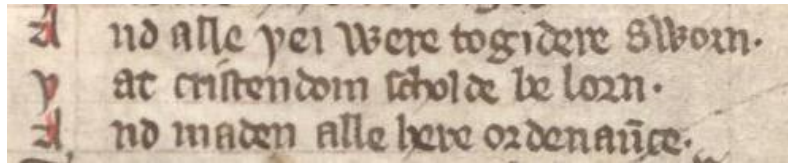 And alle yei were togidere sworn.
yat cristendom scholde be lorn.
And maden alle here ordenaūce.